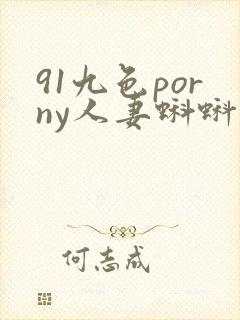 91九色por
ny人妻蝌蝌
何志成